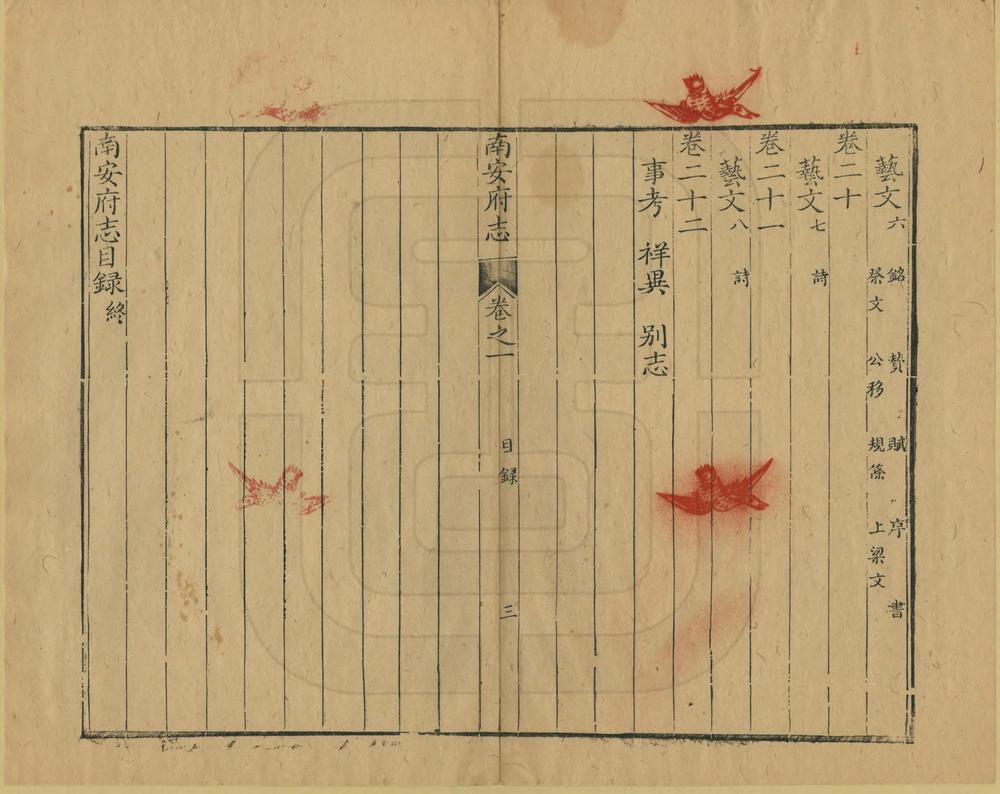 藝文六 銘 贊 賦 序 書
祭文 公移 規條 上梁文
卷二十
藝文七 詩
卷二十一
藝文八 詩
卷二十二
事考 祥異 别志
南安府志 卷之一 目録 三
南安府志目録終